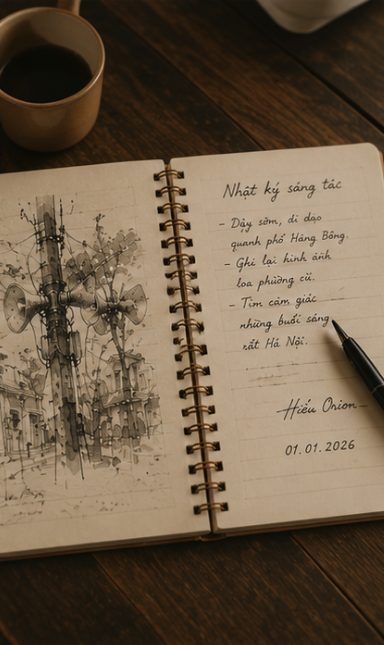 Nhật ký sáng tác
- Dậy sớm, đi dạo
quanh phố Hàng Bông.
- Ghi lại hình ảnh
loa phường cũ.
- Tìm cảm giác
những buổi sáng
rất Hà Nội.
Hiếu Onion
01.01.2026